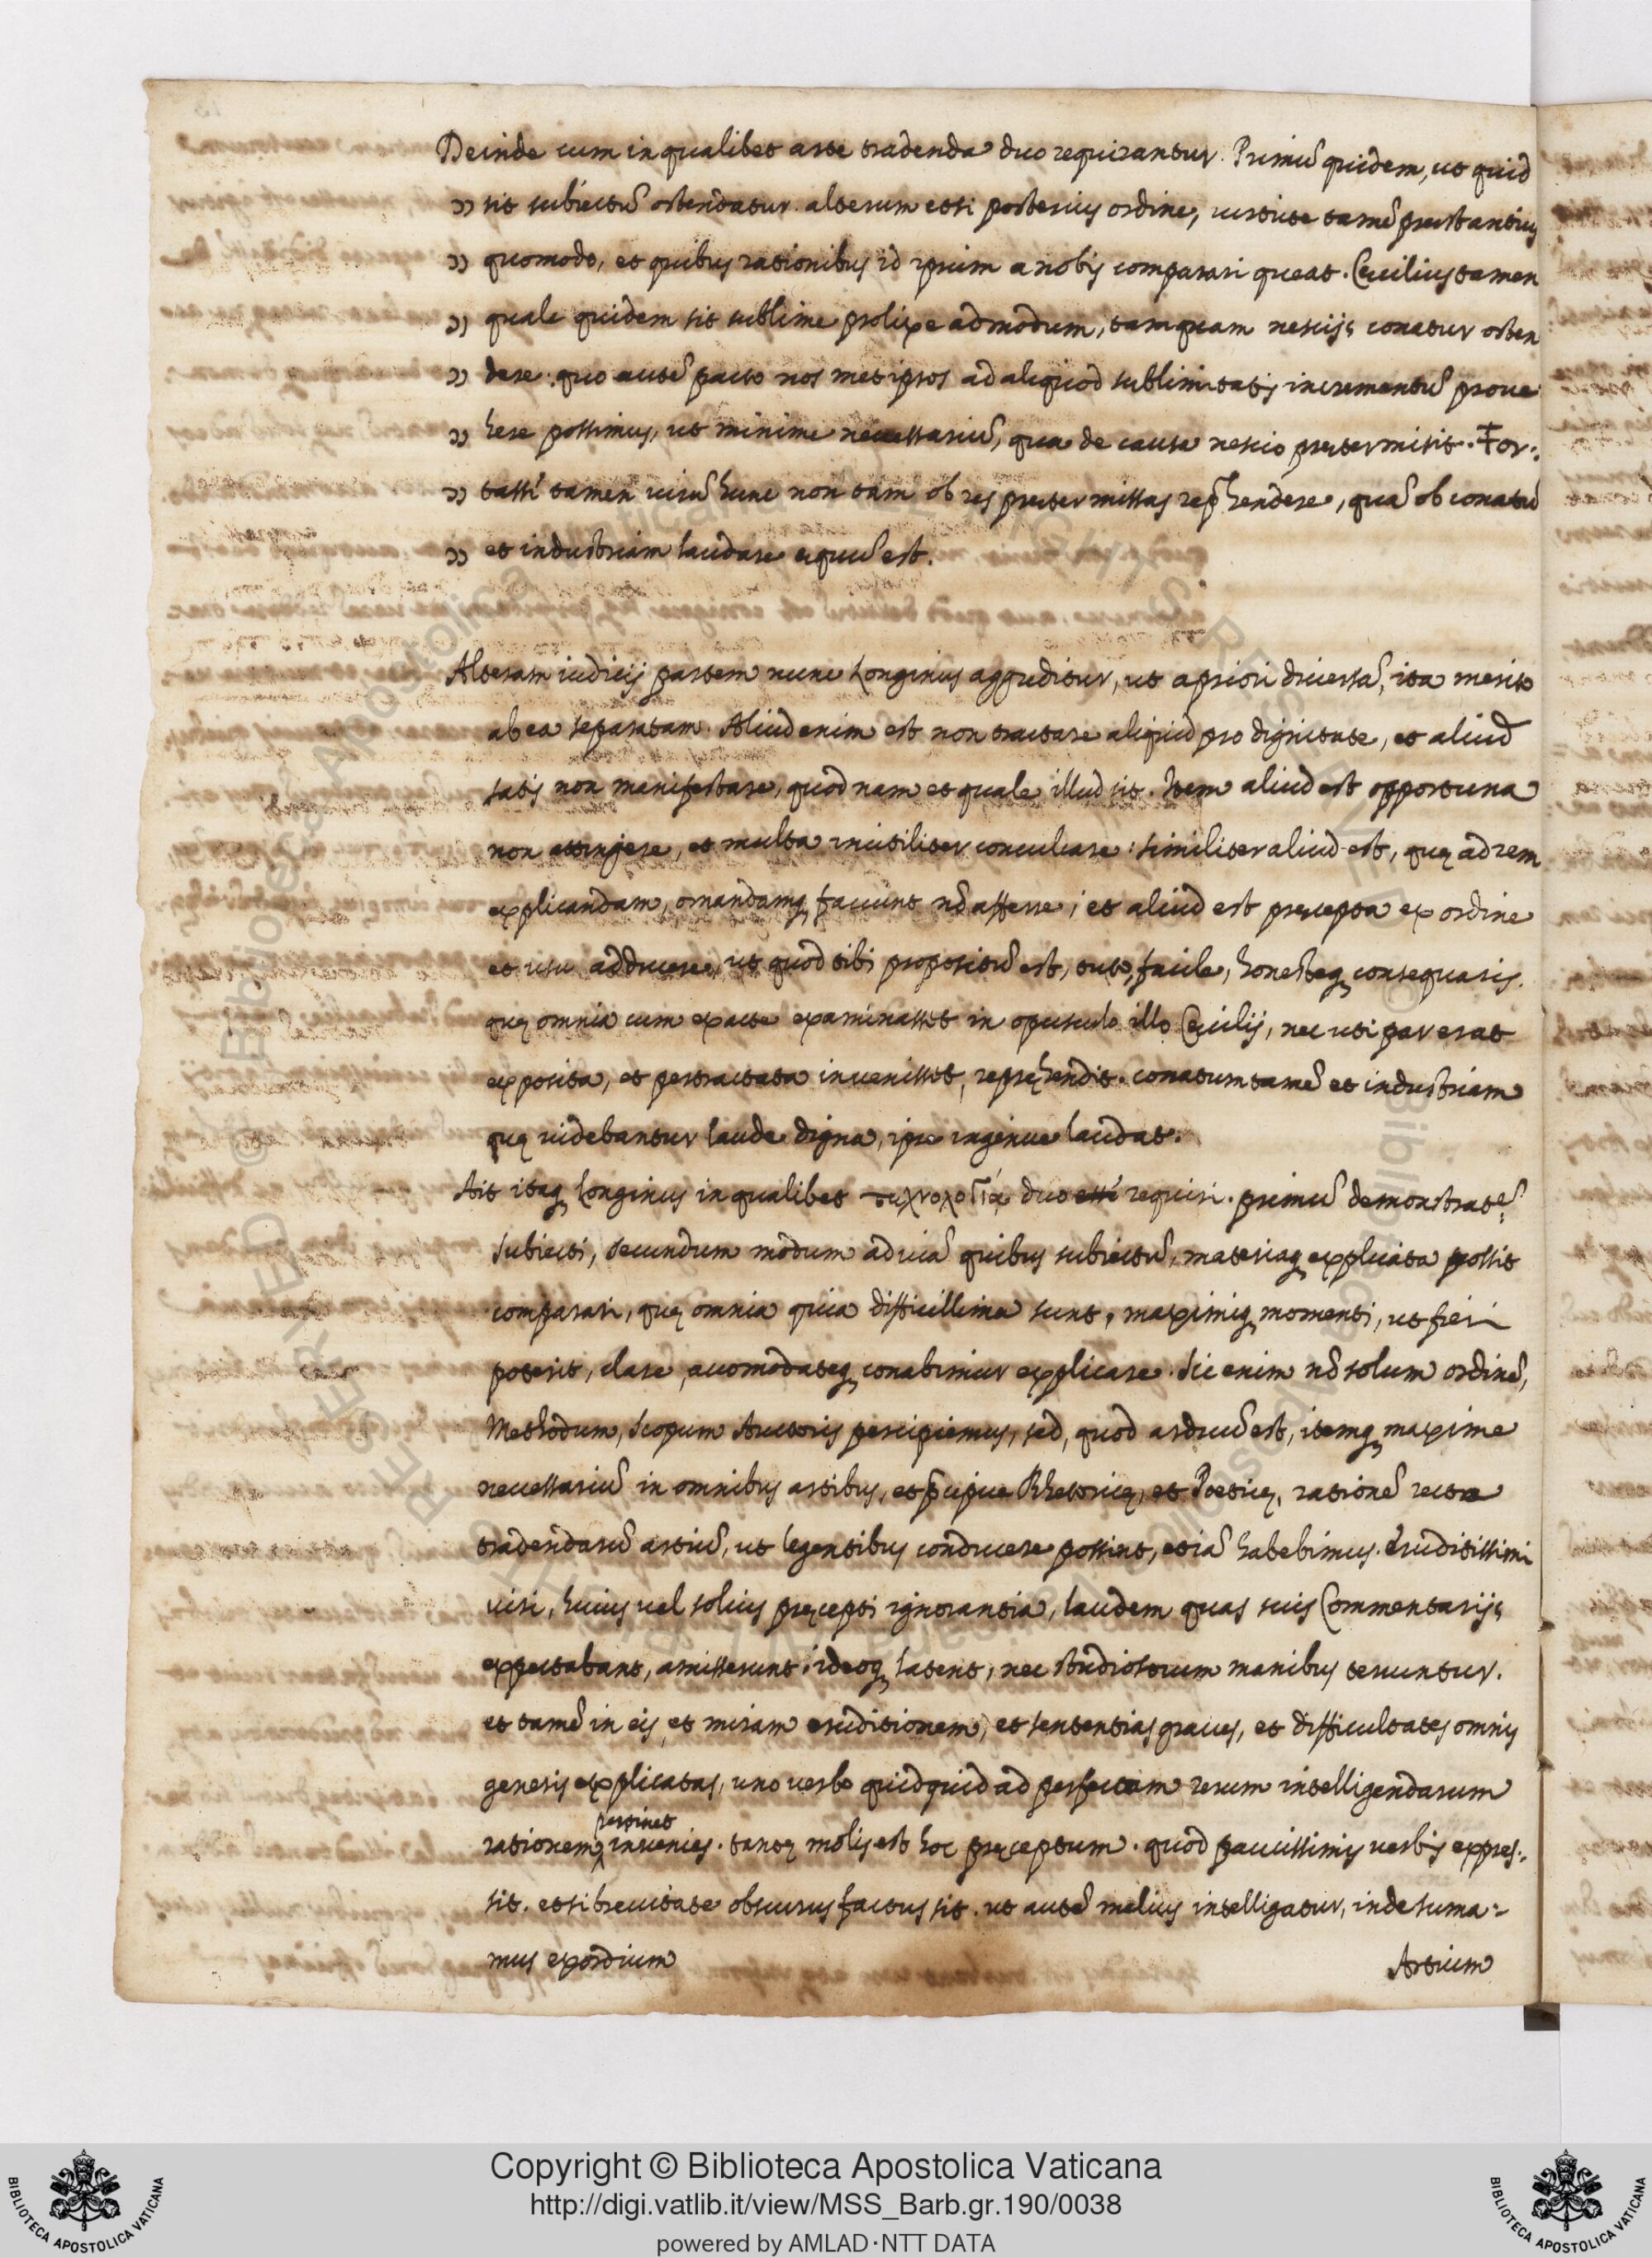 Deinde cum in qualibet arte tradenda duo requirantur. Primũ quidem, ut quid
ɔɔ sit subiectũ ostendatur. alterum etsi posterius ordine, uirtute tamẽ prestantius
ɔɔ quomodo, et quibus rationibus id ipsum a nobis comparari queat. Cęcilius tamen
ɔɔ quale quidem sit sublime prolixe admodum, tamquam nescijs conatur osten
ɔɔ dere: quo autẽ pacto nos met ipsos ad aliquod sublimitatis incrementũ proue
ɔɔ here possimus, ut minime necessariũ, qua de causa nescio pretermisit. For:
ɔɔ tassè tamen uirũ hunc non tam ob res pretermissas rep̃hendere, quã ob conatũ
ɔɔ et industriam laudare ęquũ est.
Alteram iudicij partem nunc Longinus aggreditur, ut a priori diuersã, ita merito
ab ea separatam. Aliud enim est non tractare aliquid pro dignitate, et aliud
satis non manifestare, quod nam et quale illud sit. Item aliud est opportuna
non attingere, et multa inutiliter conculcare: similiter aliud est, quę ad rem
explicandam, ornandamq; faciunt nõ afferre; et aliud est pręcepta ex ordine
et usu adducere, ut quod tibi propositũ est, tuto, facile, honesteq; consequaris.
quę omnia cum exacte examinasset in opusculo illo Cęcilij, nec uti par erat
exposita, et pertractata inuenisset, repręhendit. conatum tamẽ et industriam
quę uidebantur laude digna, ipse ingenue laudat.
Ait itaq; Longinus in qualibet τεχνολογίᾳ duo essè requiri. primũ demonstratẽ
subiecti, secundum modum ac uiã quibus subiectũ, materiaq; explicata possit
comparari, quę omnia quia difficillima sunt, maximiq; momenti, ut fieri
poterit, clare, accomodateq; conabimur explicare. Sic enim nõ solum ordinẽ,
Methodum, scopum Auctoris percipiemus, sed, quod arduũ est, itemq; maxime
necessariũ in omnibus artibus, et p̃cipue Rhetoricę, et Poeticę, rationẽ recte
tradendarũ artiũ, ut legentibus conducere possint, etiã habebimus. Eruditissimi
uiri, huius uel solius pręcepti ignorantia, laudem quas suis Commentarijs
expectabant, amisserunt. ideoq; latent, nec studiosorum manibus teruntur.
et tamẽ in eis, et miram eruditionem, et sententias graues, et difficultates omnis
generis explicatas, uno uerbo quidquid ad perfectam rerum intelligendarum
rationem pertinet inuenies. tantę molis est hoc pręceptum. quod paucissimis uerbis expres:
sit. etsi breuitate obscurus factus sit. ut autẽ melius intelligatur, inde suma:
mus exordium
Artium
Copyright © Biblioteca Apostolica Vaticana
http://digi.vatlib.it/view/MSS_Barb.gr.190/0038
powered by AMLAD·NTT DATA
BIBLIOTECA APOSTOLICA VATICANA
BIBLIOTECA APOSTOLICA VATICANA